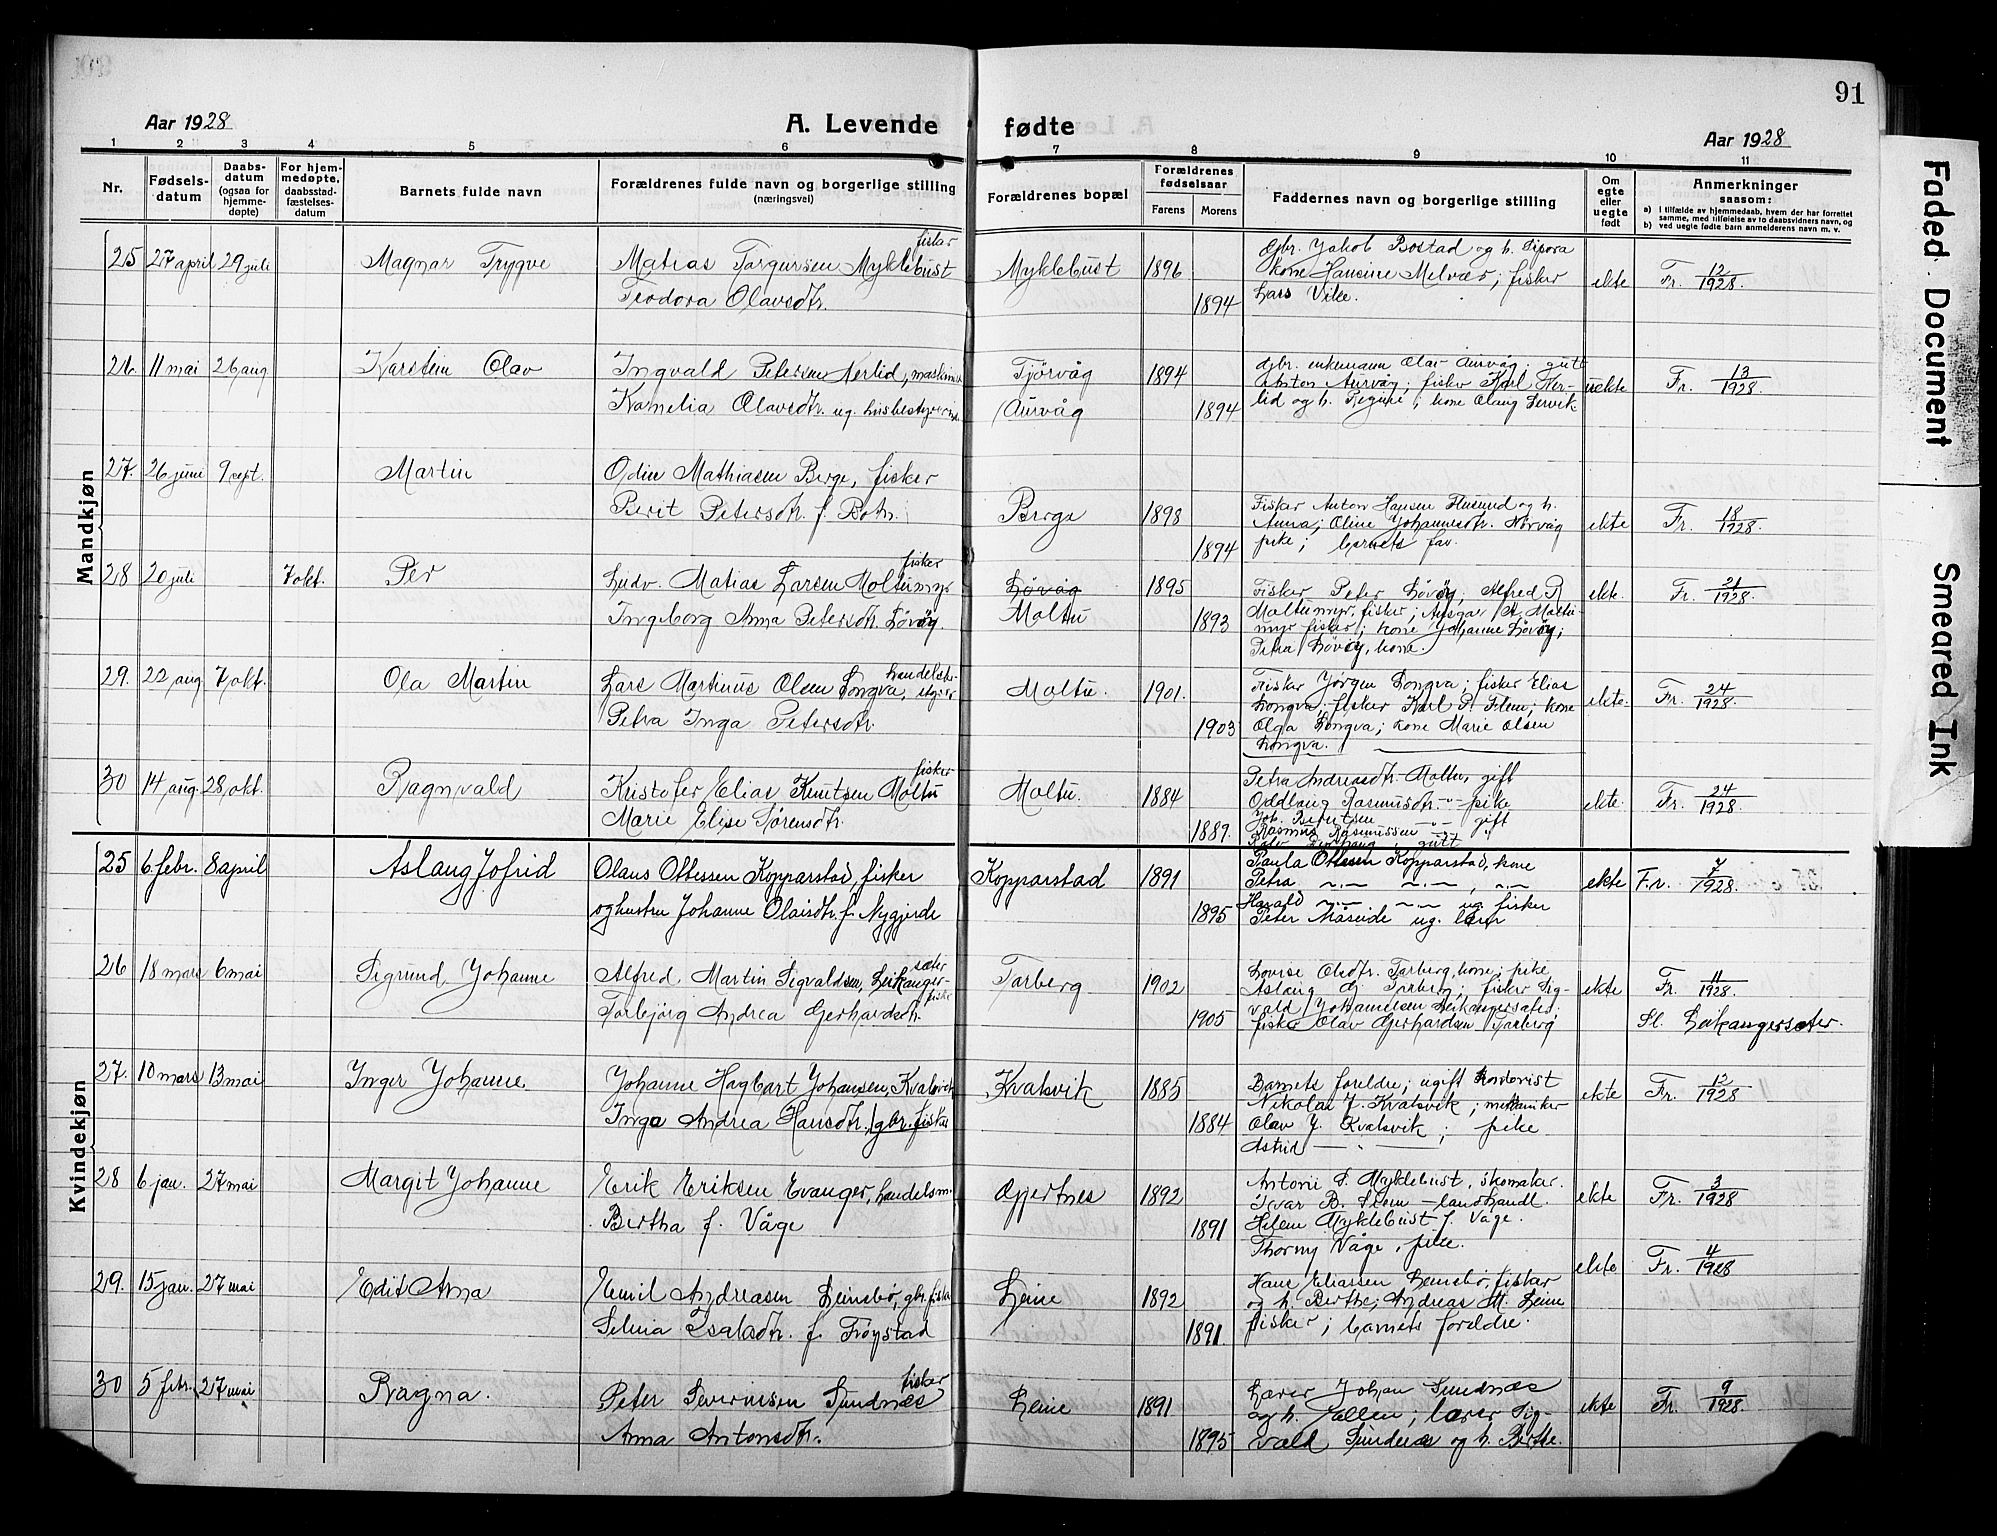 91
Aar 1928
A. Levende
fødte
Aar 1928
1 2 3 4 5 6 7 8 9 10 11
Nr.
Fødsels-
datum
Daabs-
datum
(ogsaa for
hjemme-
døpte)
For hjem-
medøpte.
daabsstad-
fæstelses-
datum
Barnets fulde navn
Forældrenes fulde navn og borgerlige stilling
(næringsvei)
Forældrenes bopæl
Forældrenes
fødselsaar
Farens Morens
Faddernes navn og borgerlige stilling
Om
egte
eller
uegte
født
Anmerkninger
saasom:
a) i tilfælde av hjemmedaab, hvem der har forrettet
samme, med tilføielse av to daabsvidners navn, og
b) ved uegte fødte barn anmelderens navn m. v.
Mandkjøn
25 27 april 29 juli Magnar Trygve
fisker
Matias Torgursen Myklebust
Teodora Olavsdtr.
Myklebust 1896
1894
Gbr. Jakob Bostad og h. Sipora
kone Hansine Melvær; fisker
Lars Vike.
ekte Fr. 12/1928.
26. 11 mai 26 aug Karstein Olav
Ingvald Petersen Nerlid, maskinist
Kornelia Olavsdtr. ug. husbestyrerinde
Tjørvåg 1894
Aurvåg 1894
gbr. enkemann Olav Aurvåg; gutt
Anton Aurvåg; fisker Karl Ner-
lid og h. Regine; kone Olaug Lervik
uekte Fr. 13/1928.
27. 26 juni 9 sept. Martin
Odin Mathiasen Berge, fisker
Berit Petersdtr. f. Botn.
Berge 1898
1894
Fisker Anton Hansen Flusund og h.
Anna; Oline Johannesdtr. Nørvåg
pike; barnets far.
ekte Fr. 18/1928.
28 20 juli 7 okt. Per
fisker
Ludv. Matias Larsen Moltumyr
Ingeborg Anna Petersdtr. Løvøy.
Løvåg 1895
Moltu 1893
Fisker Peter Løvøy; Alfred R
Moltumyr, fisker; Ansgar R. Moltu-
myr fisker; kone Johanne Løvøy;
Petra Løvøy, kone.
ekte. Fr. 21/1928.
29. 22 aug 7 okt. Ola Martin
handelsbe-
Lars Martinus Olsen Longva, styrer
Petra Inga Petersdtr.
Moltu. 1901.
1903
Fisker Jørgen Longva; fisker Elias
Longva; fisker Karl P. Flem; kone
Olga Longva; kone Marie Olsen
Longva.
ekte. Fr. 24/1928.
30 14 aug. 28 okt. Ragnvald
fisker
Kristofer Elias Knutsen Moltu
Marie Elise Sørensdtr.
Moltu. 1884
1889.
Petra Andreasdtr. Moltu, gift
Oddlaug Rasmusdtr. -"- pike
Joh. Berntsen -"- gift
Rasmus Rasmussen -"- "
ekte. Fr. 24/1928.
Kvindekjøn
25 6 febr. 8 april Aslaug Jofrid
Olaus Ottesen Kopparstad, fisker
og hustru Johanne Olaisdtr. f. Nygjerde
Kopparstad 1891
1895
Paula Ottesen Kopparstad, kone
Petra -"- -"-, -"-
Harald -"- -"- ug. fisker
Peter Måseide ug. lærer
ekte Fr. 7/1928.
26 18 mars 6 mai Sigrund Johanne
sæter
Alfred Martin Sigvaldsen, Leikanger-
fisker
Torbjørg Andrea Gerhardsdtr.
Torberg 1902
1905
Lovise Olsdtr. Tarberg, kone; pike
Aslaug G. Tarberg; fisker Sig-
vald Johannessen Leikangersæter;
fisker Olav Gerhardsen Tarberg
ekte Fr. 11/1928.
Sl. Leikangersæter.
27. 10 mars 13 mai Inger Johanne
Johanne Hagbart Johansen, Kvalsvik
Inga Andrea Hansdtr. gbr. fisker
Kvalsvik 1885
1884
Barnets foreldre; ugift
Nikolai J. Kvalsvik; mekaniker
Olav J. Kvalsvik; pike
Astrid - " -
ekte Fr. 12/1928
28 6 jan. 27 mai Margit Johanne
Erik Eriksen Evanger, handelsm.
Bertha f. Våge
Gjertnes 1892
1891
Antoni S. Myklebust, skomaker.
Ivar B. Stem - landhandl.
Helen Myklebust f. Våge.
Thorny Våge, pike.
ekte Fr. 3/1928
29. 15 jan. 27 mai Edit Anna
Emil Andreasen Leinebø, gbr. fisker
Selma Isaksdtr. f. Frøystad
Leine 1892
1891.
Hans Eliassen Leinebø, fisker
og h. Berthe; Andreas M. Leine
fisker; barnets foreldre.
ekte Fr. 4/1928
30 5 febr. 27 mai Ragna.
fisker
Peter Severinsen Sundnæs
Anna Antonsdtr.
Leine 1891
1895
Lærer Johan Sundnæs
og h. Jallen; lærer Sig-
vald Sundnæs og h. Berthe.
ekte Fr. 9/1928.
Faded Document
Smeared Ink